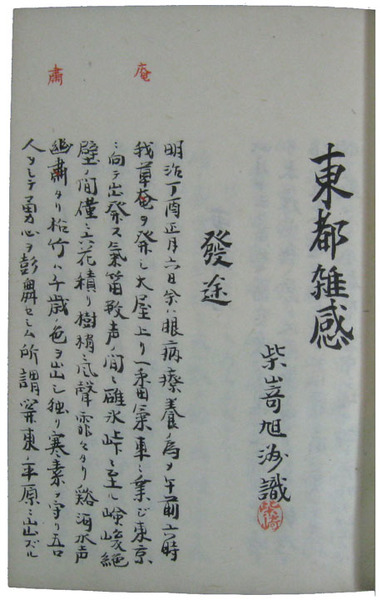 東都雑感
柴嵜旭 識
柴崎
發途
庵
肅
明治丁酉正月六日余ハ眼病療養ノ為メ午前六時
我草奄ヲ発シ大屋上リ一番滊車ニ乗ジ東京
ニ向テ出発ス氣笛数声ノ間ニ碓氷峠ニ至ル嶮峻絶
壁ノ間僅ニ六花積リ樹梢ニ風聲霏々タリ谿 水声
幽肅タリ松竹ハ千歳ノ色ヲ出シ独リ寒素ヲ守リ吾
人ヲシテ勇心ヲ 興セシム所謂関東ノ平原ニ出ズル